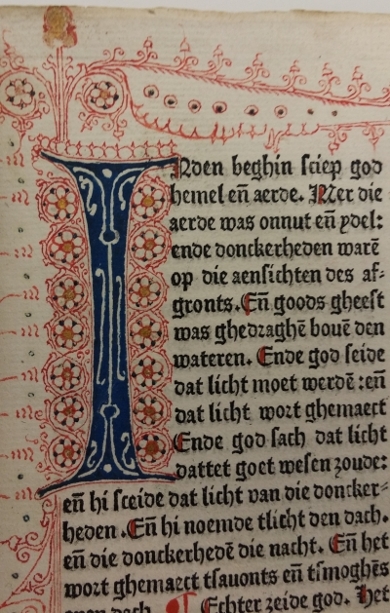 INden beghin sciep god
hemel eñ aerde. Mer die
aerde was onnut eñ ydel:
ende donckerheden warē
op die aensichten des af-
gronts. Eñ goods gheest
was ghedraghē bouē den
wateren. Ende god seide
dat licht moet werdē : eñ
dat licht wort ghemaect
Ende god sach dat licht
dattet goet wesen zoude:
eñ hi sceide dat licht van die doncker-
heden. Eñ hi noemde tlicht den dach.
eñ die donckerhedē die nacht. Eñ het
wort ghemaect tsauonts eñ tsmorghēs
dach. ¶ Echter zeide god. Het